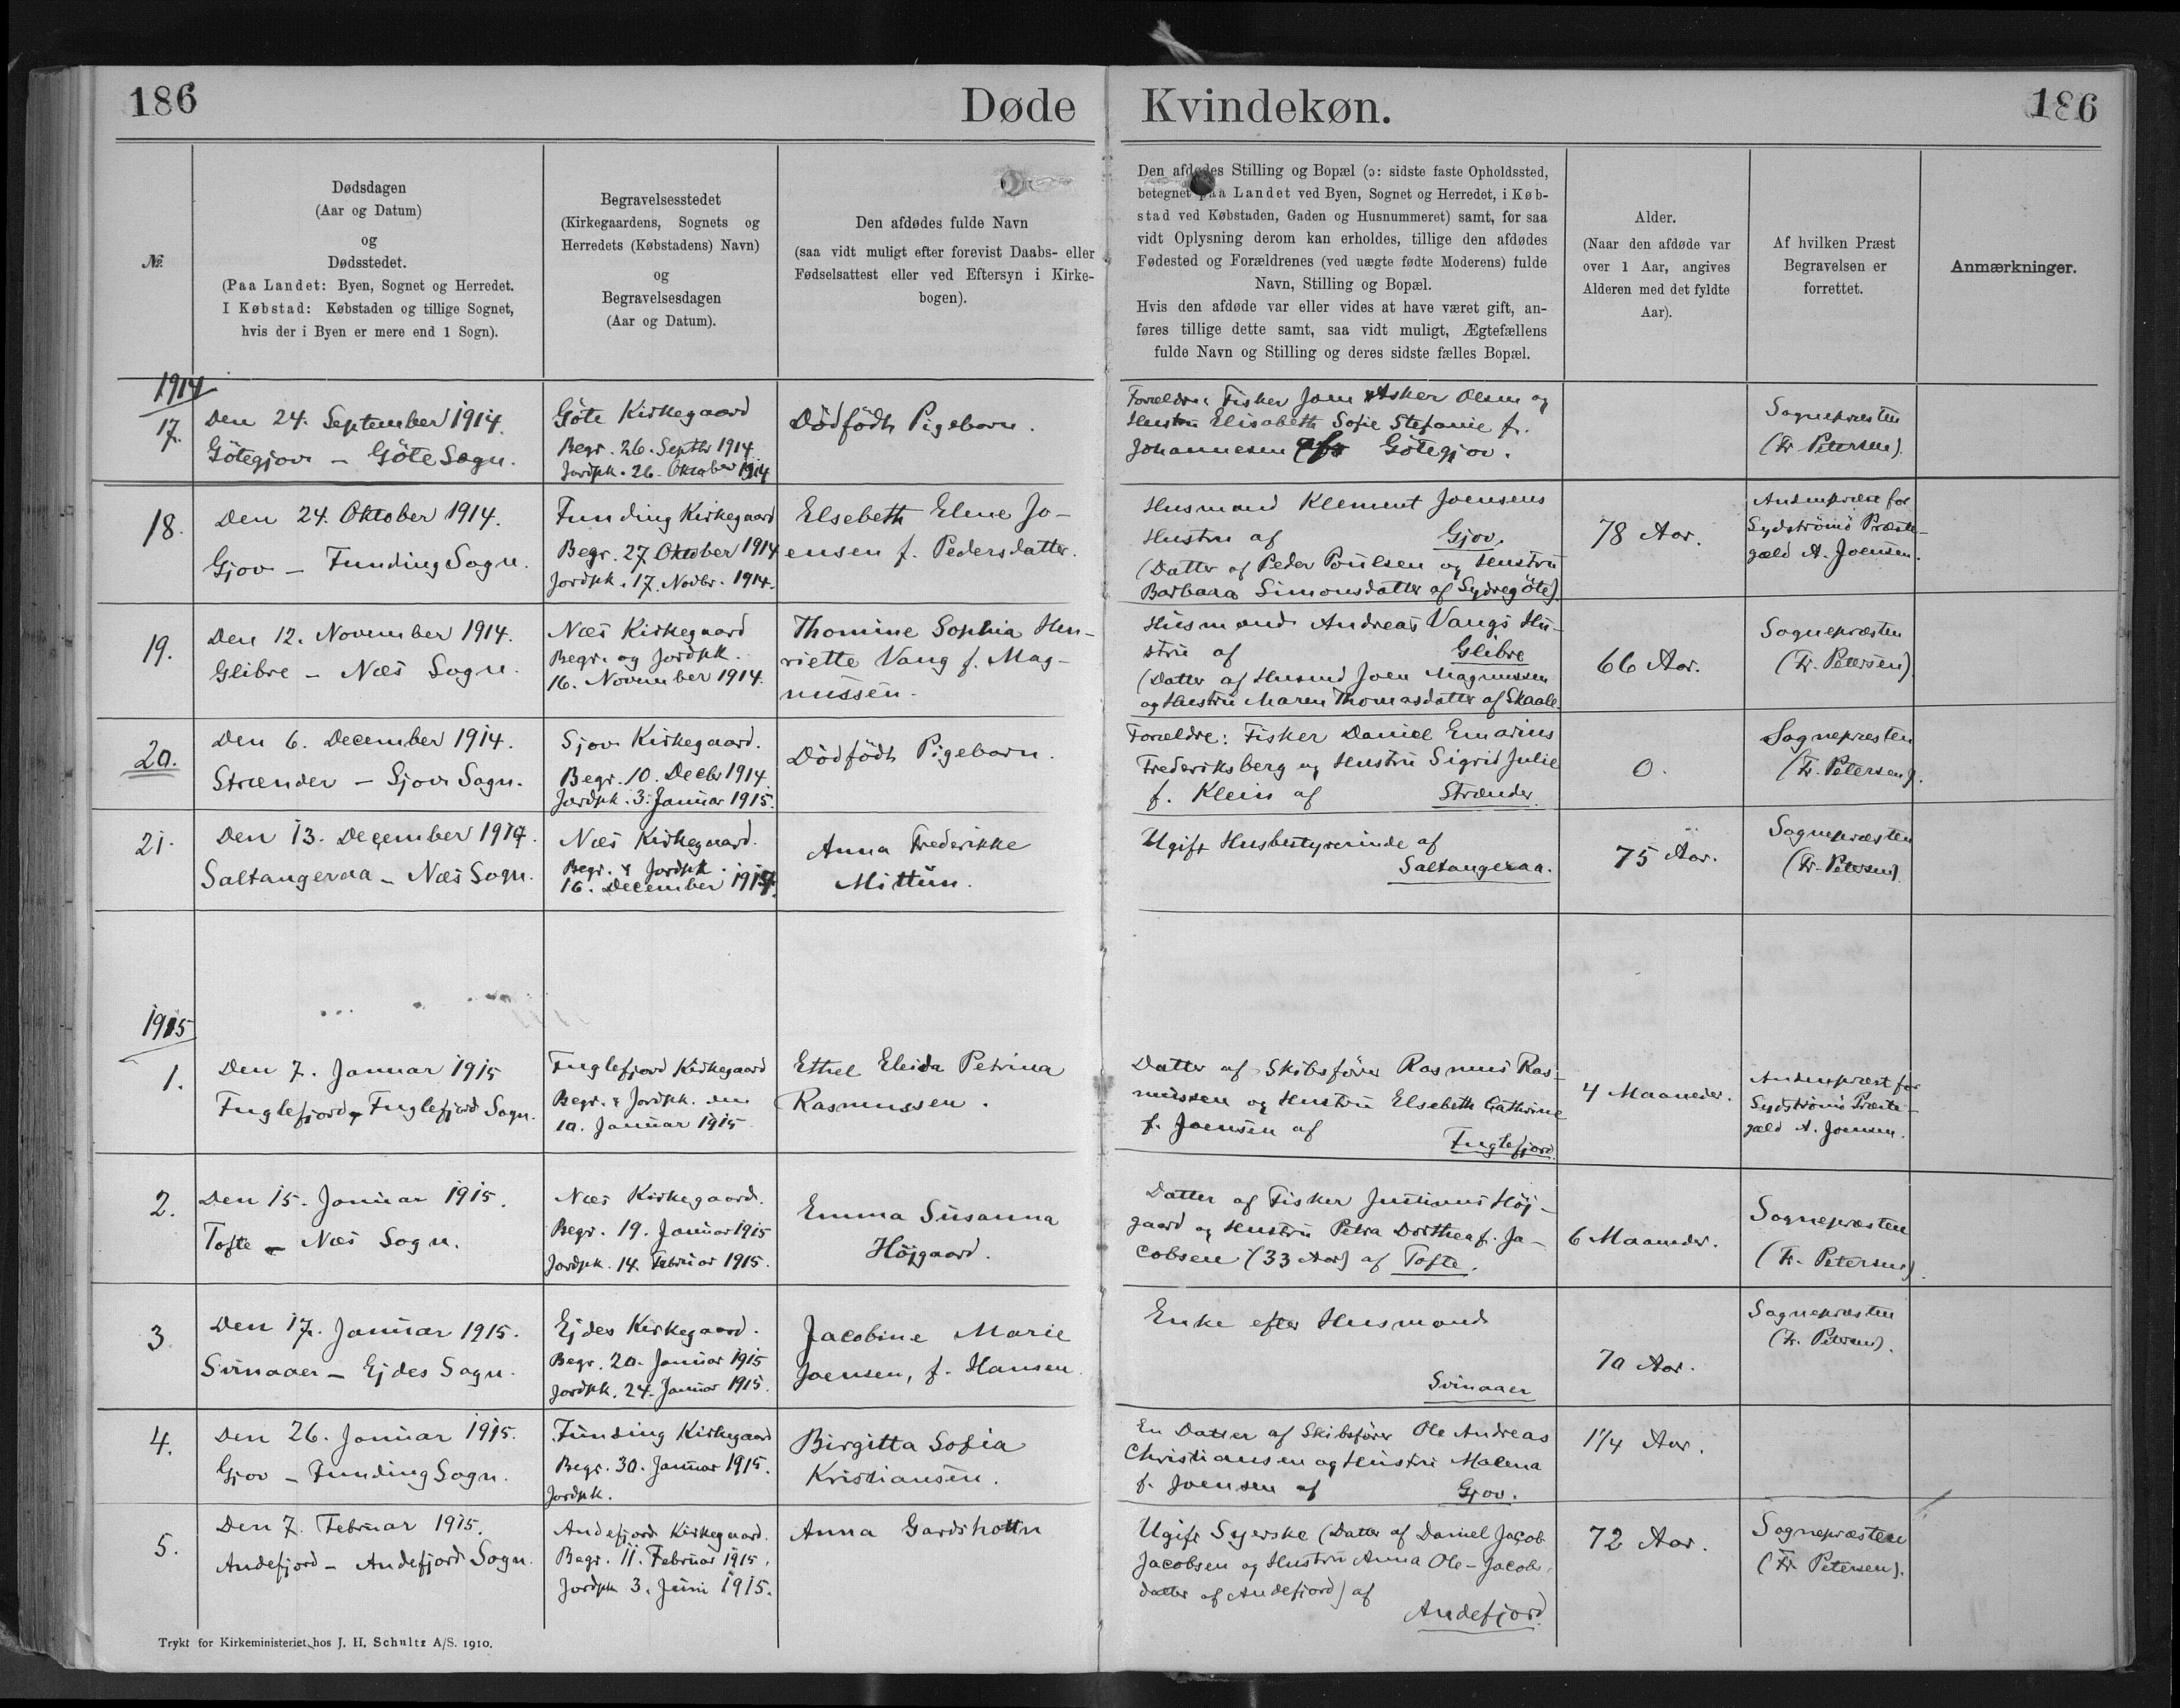 186
Døde
Kvindekøn.
186
№
Dødsdagen
(Aar og Datum)
og
Dødsstedet.
(Paa Landet: Byen, Sognet og Herredet.
I Købstad: Købstaden og tillige Sognet,
hvis der i Byen er mere end 1 Sogn).
Begravelsesstedet
(Kirkegaardens, Sognets og
Herredets (Købstadens) Navn)
og
Begravelsesdagen
(Aar og Datum).
Den afdødes fulde Navn
(saa vidt muligt efter forevist Daabs- eller
Fødselsattest eller ved Eftersyn i Kirke-
bogen).
Den afdødes Stilling og Bopæl (ɔ: sidste faste Opholdssted,
betegnet paa Landet ved Byen, Sognet og Herredet, i Køb-
stad ved Købstaden, Gaden og Husnummeret) samt, for saa
vidt Oplysning derom kan erholdes, tillige den afdødes
Fødested og Forældrenes (ved uægte fødte Moderens) fulde
Navn, Stilling og Bopæl.
Hvis den afdøde var eller vides at have været gift, an-
føres tillige dette samt, saa vidt muligt, Ægtefællens
fulde Navn og Stilling og deres sidste fælles Bopæl.
Alder.
(Naar den afdøde var
over 1 Aar, angives
Alderen med det fyldte
Aar).
Af hvilken Præst
Begravelsen er
forrettet.
Anmærkninger.
1914
17.
Den 24. September 1914.
Götegjov – Göte Sogn.
Göte Kirkegaard
Begr. 26. Septbr 1914
Jordpk. 26. Oktober 1914
Dödfödt Pigebarn.
Forældre: Fisker Joen Asker Olsen og
Hustru Elisabeth Sofie Stefanie f.
Johannesen af Götegjov.
Sognepræsten
(Fr. Petersen).
18.
Den 24. Oktober 1914.
Gjov – Funding Sogn.
Funding Kirkegaard
Begr. 27. Oktober 1914
Jordpk. 17. Novbr. 1914.
Elsebeth Elene Jo-
ensen f. Pedersdatter.
Husmand Klement Joensens
Hustru af Gjov.
(Datter af Peder Poulsen og Hustru
Barbara Simonsdatter af Sydregöte).
78 Aar.
Andenpræst for
Sydströmö Præste-
gæld A. Joensen.
19.
Den 12. November 1914.
Glibre – Næs Sogn.
Næs Kirkegaard
Begr. og Jordpk.
16. November 1914.
Thomine Sophia Hen-
riette Vang f. Mag-
nussen.
Husmand Andreas Vangs Hu-
stru af Glibre
(Datter af Husmd Joen Magnussen
og Hustru Maren Thomasdatter af Skaale.
66 Aar.
Sognepræsten
(Fr. Petersen)
20.
Den 6. December 1914.
Strænder – Sjov Sogn.
Sjov Kirkegaard.
Begr. 10. Decbr 1914.
Jordpk. 3. Januar 1915.
Dödfödt Pigebarn.
Forældre: Fisker Daniel Emarius
Frederiksberg og Hustru Sigrid Julie
f. Klein af Strænder.
0.
Sognepræsten
(Fr. Petersen).
21.
Den 13. December 1914.
Saltangeraa – Næs Sogn.
Næs Kirkegaard.
Begr. & Jordpk.
16. December 1914.
Anna Frederikke
Mittün.
Ugift Husbestyrerinde af
Saltangeraa.
75 Aar.
Sognepræsten
(Fr. Petersen)
1915
1.
Den 7. Januar 1915
Fuglefjord – Fuglefjord Sogn.
Fuglefjord Kirkegaard
Begr. & Jordpk. den
10. Januar 1915
Ethel Eleida Petrina
Rasmussen.
Datter af Skibsförer Rasmus Ras-
mussen og Hustru Elsebeth Cathrine
f. Joensen af Fuglefjord.
4 Maaneder.
Andenpræst for
Sydströmö Præste-
gæld A. Joensen.
2.
Den 15. Januar 1915.
Tofte – Næs Sogn.
Næs Kirkegaard.
Begr. 19. Januar 1915
Jordpk. 14. Februar 1915.
Emma Susanna
Höjgaard.
Datter af Fisker Justinus Höj-
gaard og Hustru Petra Dorthea f. Ja-
cobsen (33 Aar) af Tofte.
6 Maaneder.
Sognepræsten
(Fr. Petersen).
3
Den 17. Januar 1915.
Svinaaer – Ejdes Sogn.
Ejdes Kirkegaard.
Begr. 20. Januar 1915
Jordpk. 24. Januar 1915.
Jacobine Marie
Joensen, f. Hansen.
Enke efter Husmand
Svinaaer
70 Aar.
Sognepræsten
(Fr. Petersen).
4.
Den 26. Januar 1915.
Gjov – Funding Sogn.
Funding Kirkegaard
Begr. 30. Januar 1915.
Jordpk.
Birgitta Sofia
Kristiansen.
En Datter af Skibsförer Ole Andreas
Christiansen og Hustru Malena
f. Joensen af Gjov.
1 1/4 Aar.
5.
Den 7. Februar 1915.
Andefjord – Andefjord Sogn.
Andefjord Kirkegaard.
Begr. 11. Februar 1915.
Jordpk 3. Juni 1915.
Anna Gardshottn
Ugift Syerske (Datter af Daniel Jacob
Jacobsen og Hustru Anna Ole-Jacobs-
datter af Andefjord) af
Andefjord.
72 Aar.
Sognepræsten
(Fr. Petersen).
Trykt for Kirkeministeriet hos J. H. Schultz A/S. 1910.